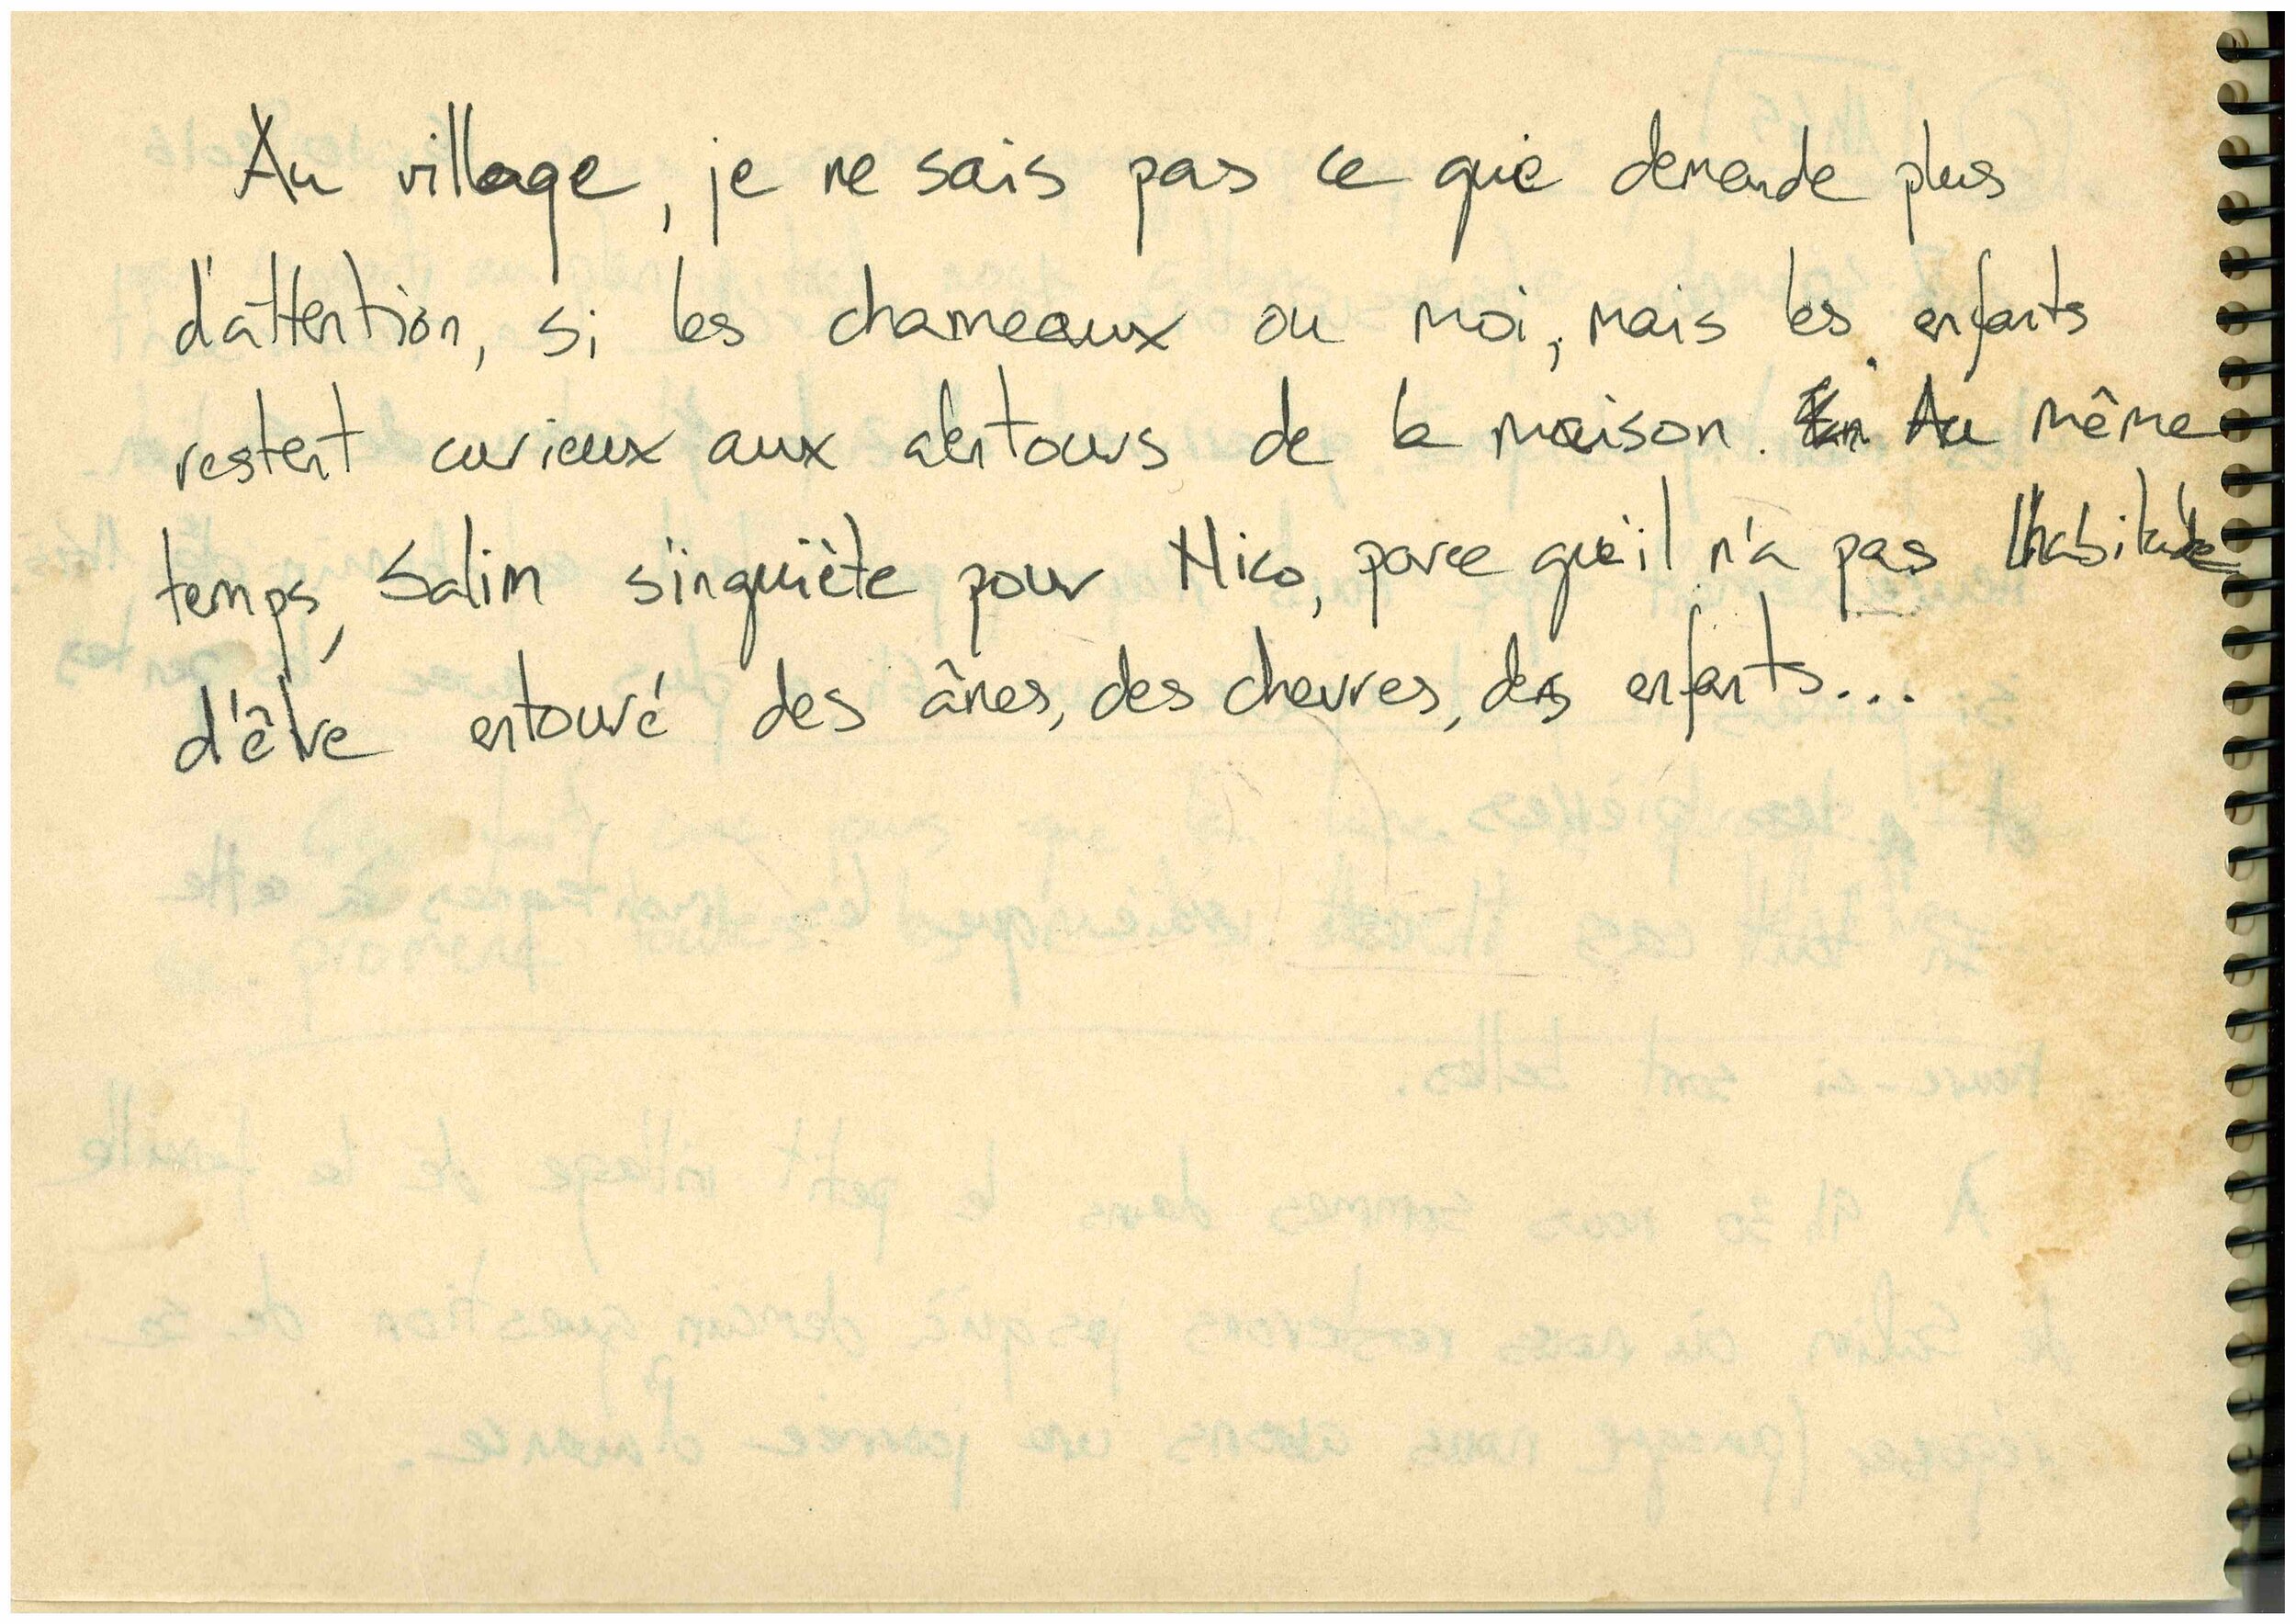 Au village, je ne sais pas ce que demande plus
d'attention, si les chameaux ou moi, mais les enfants
restent curieux aux alentours de la maison. En Au même
temps, Salim s'inquiète pour Nico, parce qu'il n'a pas l'habitude
d'être entouré des ânes, des chevres, des enfants...